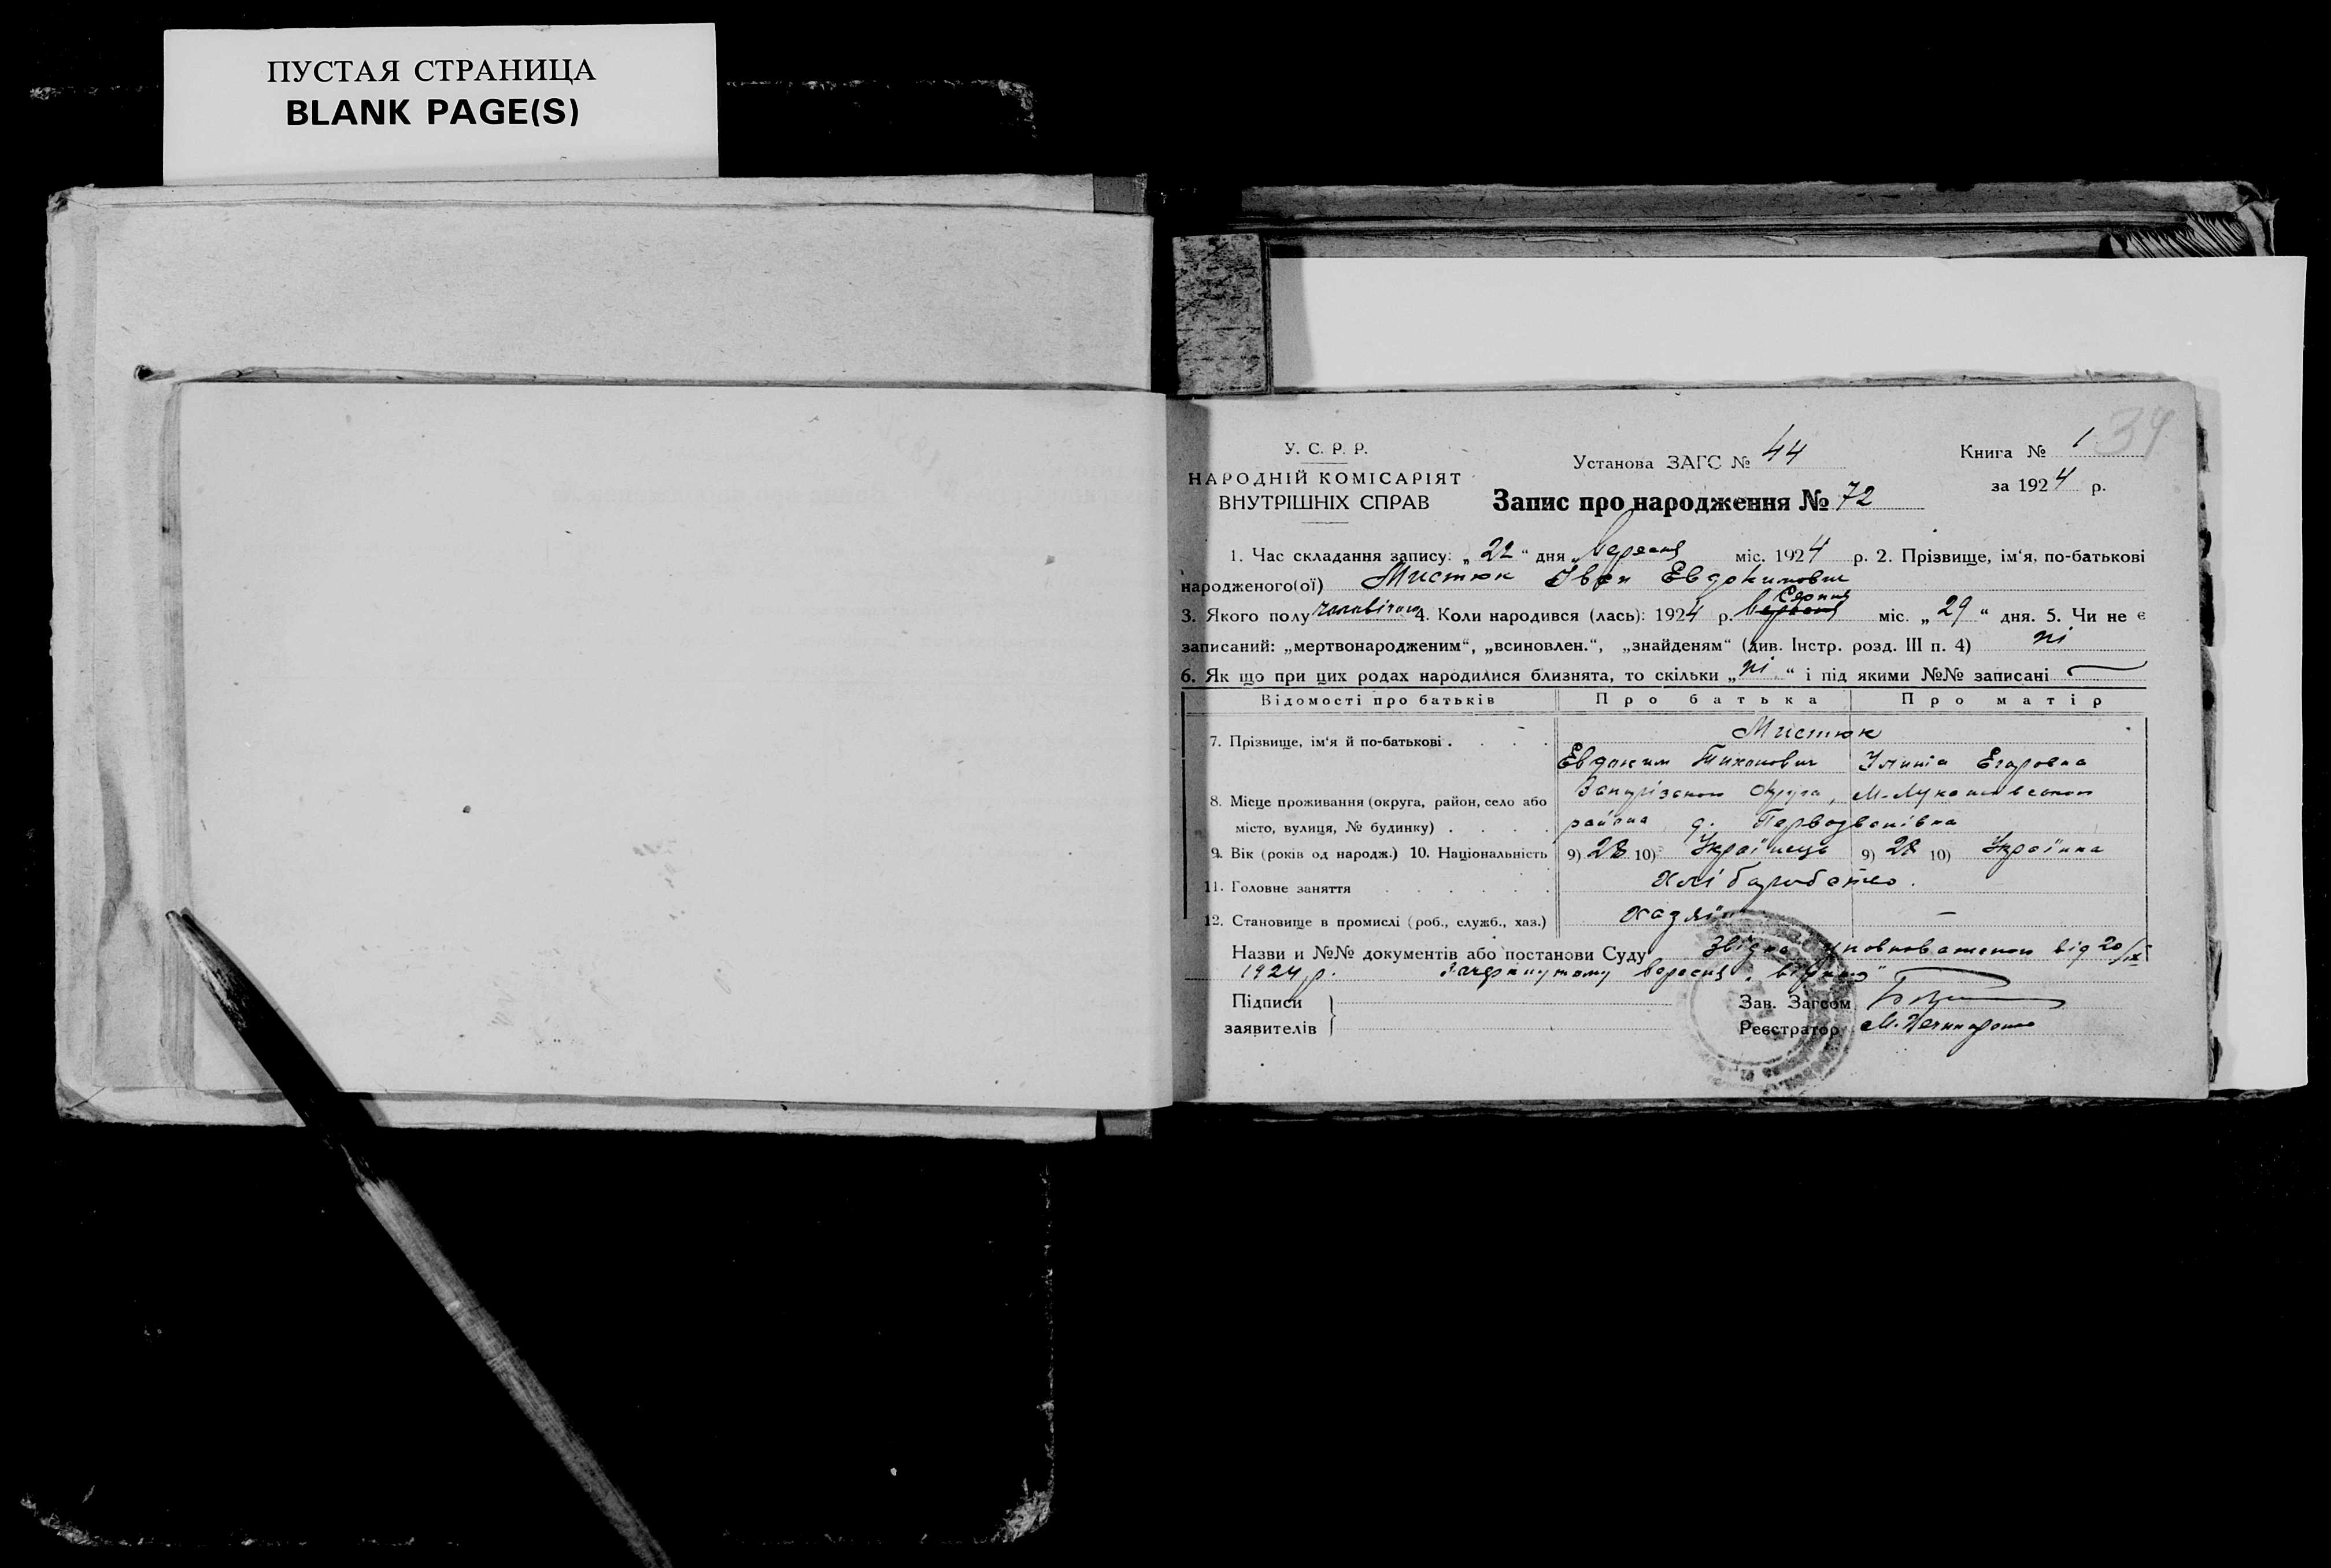 ПУСТАЯ СТРАНИЦА
BLANK PAGE(S)
34
У. С. Р. Р.
НАРОДНІЙ КОМІСАРІЯТ
ВНУТРІШНІХ СПРАВ
Установа ЗАГС № 44
Запис про народження № 72
Книга № 1
за 1924 р.
1. Час складання запису: „22“ дня Вересня міс. 1924 р. 2. Прізвище, ім‘я, по-батькові
народженого(ої) Мистюк Іван Евдокимович
Серпня
3. Якого полу чоловічого 4. Коли народився (лась): 1924 р. Вересня міс. „29“ дня. 5. Чи не є
записаний: „мертвонародженим“, „всиновлен.“, „знайденям“ (див. Інстр. розд. III п. 4) ні
6. Як що при цих родах народилися близнята, то скільки „ні“ і під якими №№ записані —
Відомості про батьків Про батька Про матір
7. Прізвище, ім‘я й по-батькові . . . . Мистюк
Евдоким Тиханович Егаровна
8. Місце проживання (округа, район, село або Запорізькой Округа, М-Лукашевського
місто, вулиця, № будинку) . . . . района д. Первозванівка
9. Вік (років од народж.) 10. Національність 9) 28 10) Українець 9) 28 10) Українка
11. Головне заняття . . . . . . Хліборобство.
12. Становище в промислі (роб., служб., хаз.) Хазяїн —
Назви и №№ документів або постанови Суду Звідка уповноваженого від 20/IX
1924 р. Зачеркнутому вересня
Підписи
заявителів
Зав. Загсом
Реєстратор